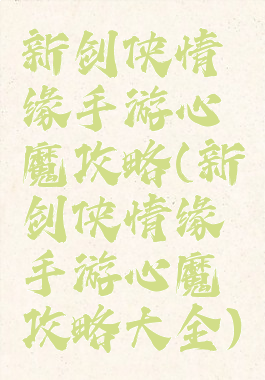 新剑侠情
缘手游心
魔攻略(新
剑侠情缘
手游心魔
攻略大全)